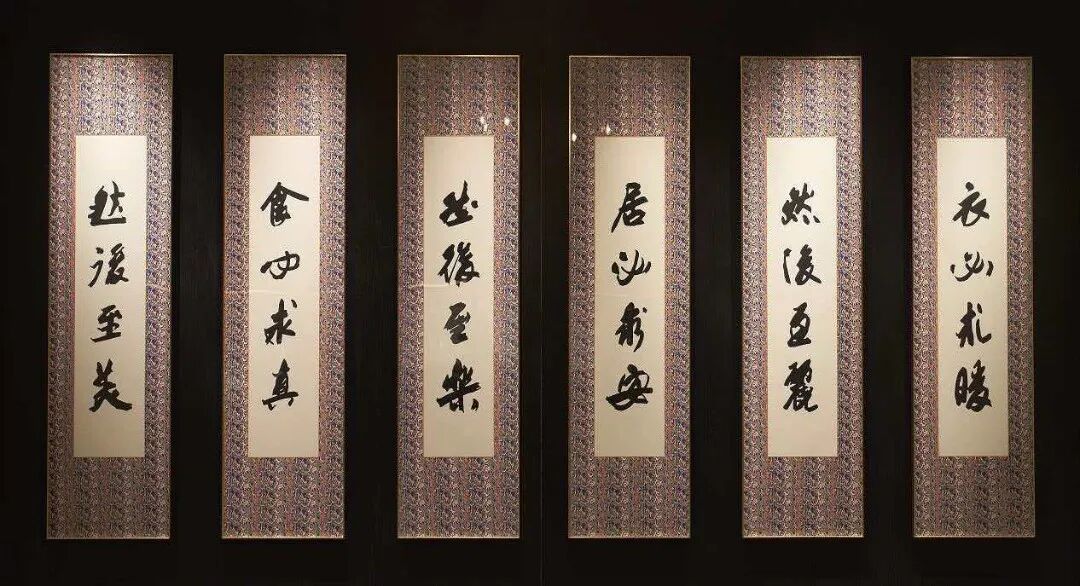 衣必求暖
然後至麗
居必求安
然後至樂
食必求真
然後至美